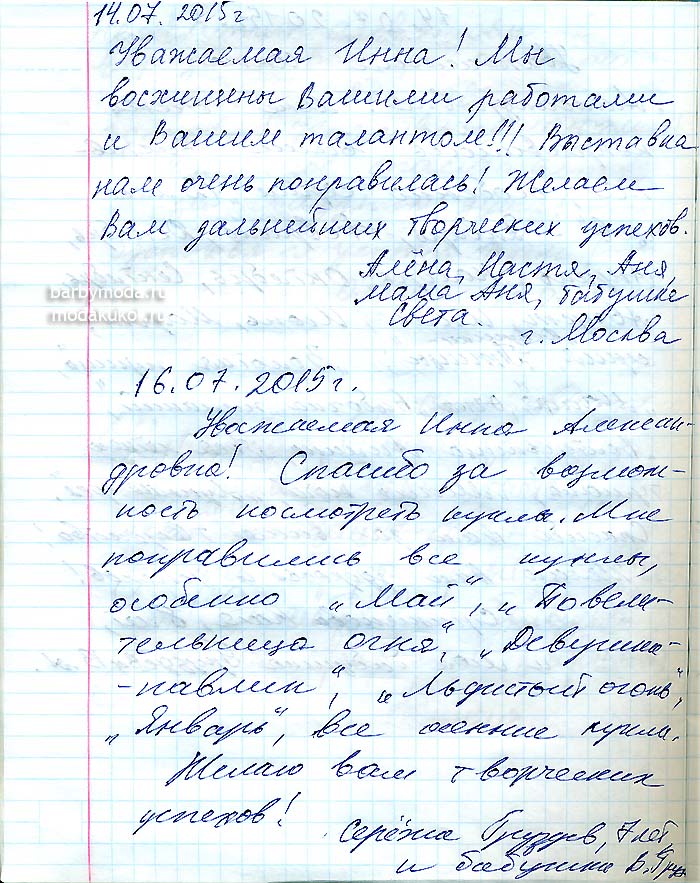 14.07.2015г
Уважаемая Инна! Мы
восхищены Вашими работами
и Вашим талантом!!! Выставка
нам очень понравилась! Желаем
Вам дальнейших творческих успехов.
Алёна, Настя, Аня,
мама Аня, бабушка
Света.
г. Москва
barbymoda.ru
modakuko.ru
16.07.2015г.
Уважаемая Инна Алексан-
дровна! Спасибо за возмож-
ность посмотреть куклы. Мне
понравились все куклы,
особенно „Май“, „Повели-
тельница огня“, „Девушка-
-павлин“, „Льдистый огонь“,
„Январь“, все осенние куклы.
Желаю вам творческих
успехов!
Серёжа 7 лет,
и бабушка В.